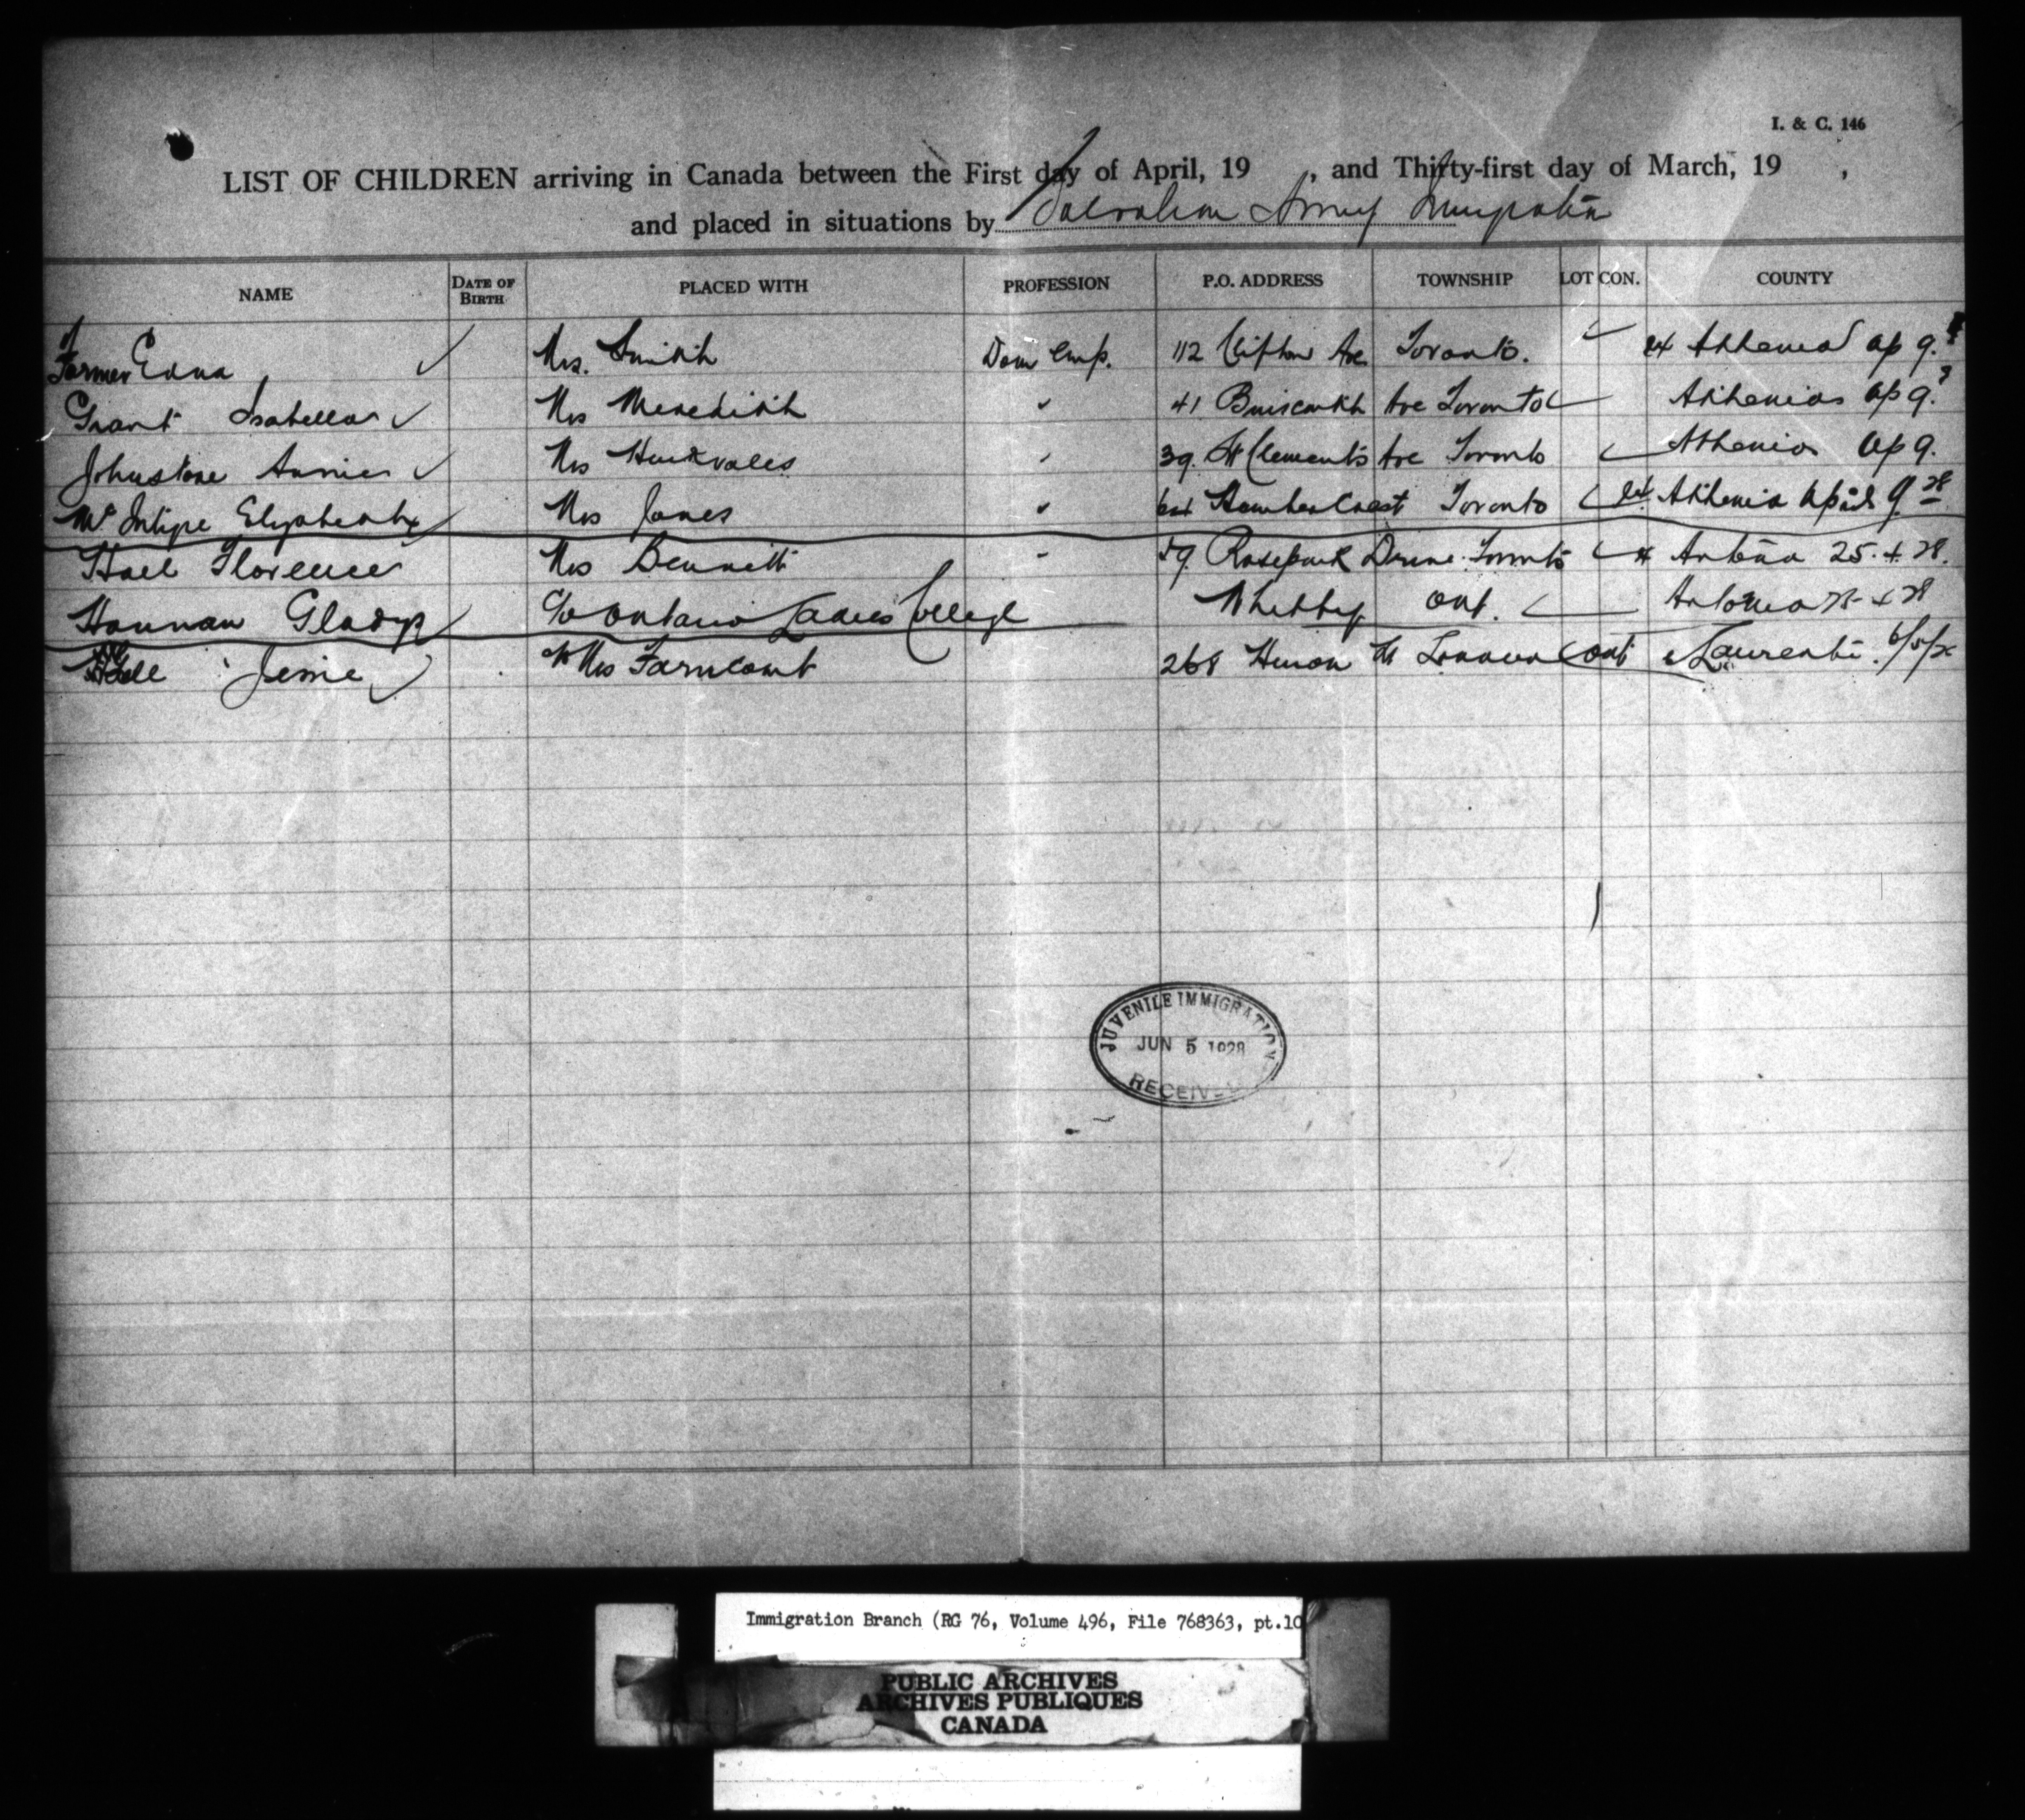 I. & C. 146
LIST OF CHILDREN arriving in Canada between the First day of April, 19 , and Thirty-first day of March, 19 ,
and placed in situations by Salvation Army
NAME DATE OF BIRTH PLACED WITH PROFESSION P.O. ADDRESS TOWNSHIP LOT CON. COUNTY
Farmer Edna ✓ Mrs. Smith Dom Emp. 112 Clifton Ave Toronto. ✓ ex Athenia Ap 9.
Grant Isabella ✓ Mrs Meredith " 41 Ave Toronto ✓ Athenia Ap 9.
Johnstone Annie ✓ Mrs " 39. St Clements Ave Toronto ✓ Athenia Ap 9.
Elizabeth ✓ Mrs Jones " Toronto ✓ ex Athenia April 9 28
Florence Mrs Bennett " Rosepark Drive Toronto ✓ Antonia 25. 4. 28.
Hannan Gladys c/o Ontario Ladies College Whitby Ont. ✓ Antonia 25 4 28
Jessie ✓ c/o Mrs Farncomb 268 Huron St London Ont Laurentic.
JUVENILE IMMIGRATION
JUN 5 1928
RECEIVED
Immigration Branch (RG 76, Volume 496, File 768363, pt.10
PUBLIC ARCHIVES
ARCHIVES PUBLIQUES
CANADA